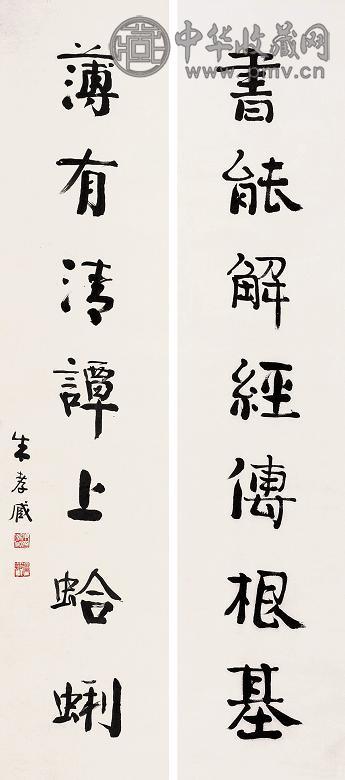 書能解經傳根基
薄有清譚上蛤蜊
朱孝臧
中华收藏网
www.pmv.cn